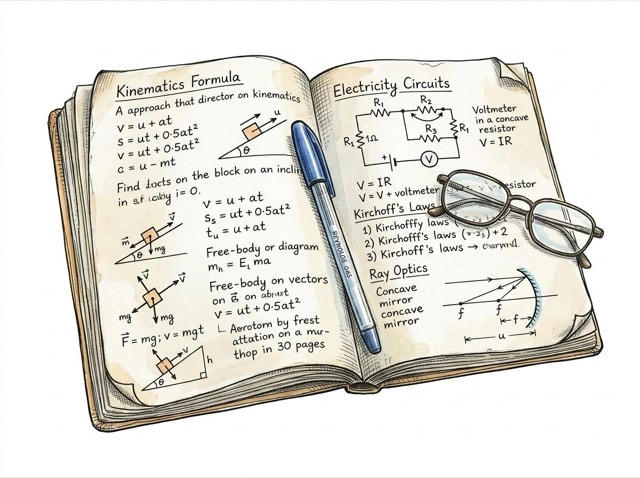 Kinematics Formula
A approach that director on kinematics
v = u + at
s = ut + 0·5at²
v = ut + 0·5at²
a = u - mt
u
θ
Find on the block on an incli
in i = 0.
v = u + at
Sₛ = ut + 0·5at²
tᵤ = u + at
m
v⃗
mg
θ
Free-body or diagram
mₕ = E₁ ma
v⃗
v⃗
mg
mg
Free-body on vectors
on on
v = ut + 0·5at²
F⃗ = mg; v = mgt
Aerotom by frest
attation on a mur-
thop in 30 pages
v
h
θ
REYNOLDS 045
Electricity Circuits
R₁
R₂
R₃
R₁
1Ω
R₁
+
V
Voltmeter
in a concave
resistor
V = IR
V = IR
V = V + voltmeter resistor
Kirchoff's Laws
1) Kirchofffy laws
2) Kirchofff's laws + 2
3) Kirchoff's laws →
Ray Optics
Concave
mirror
concave
mirror
f
f
f
u